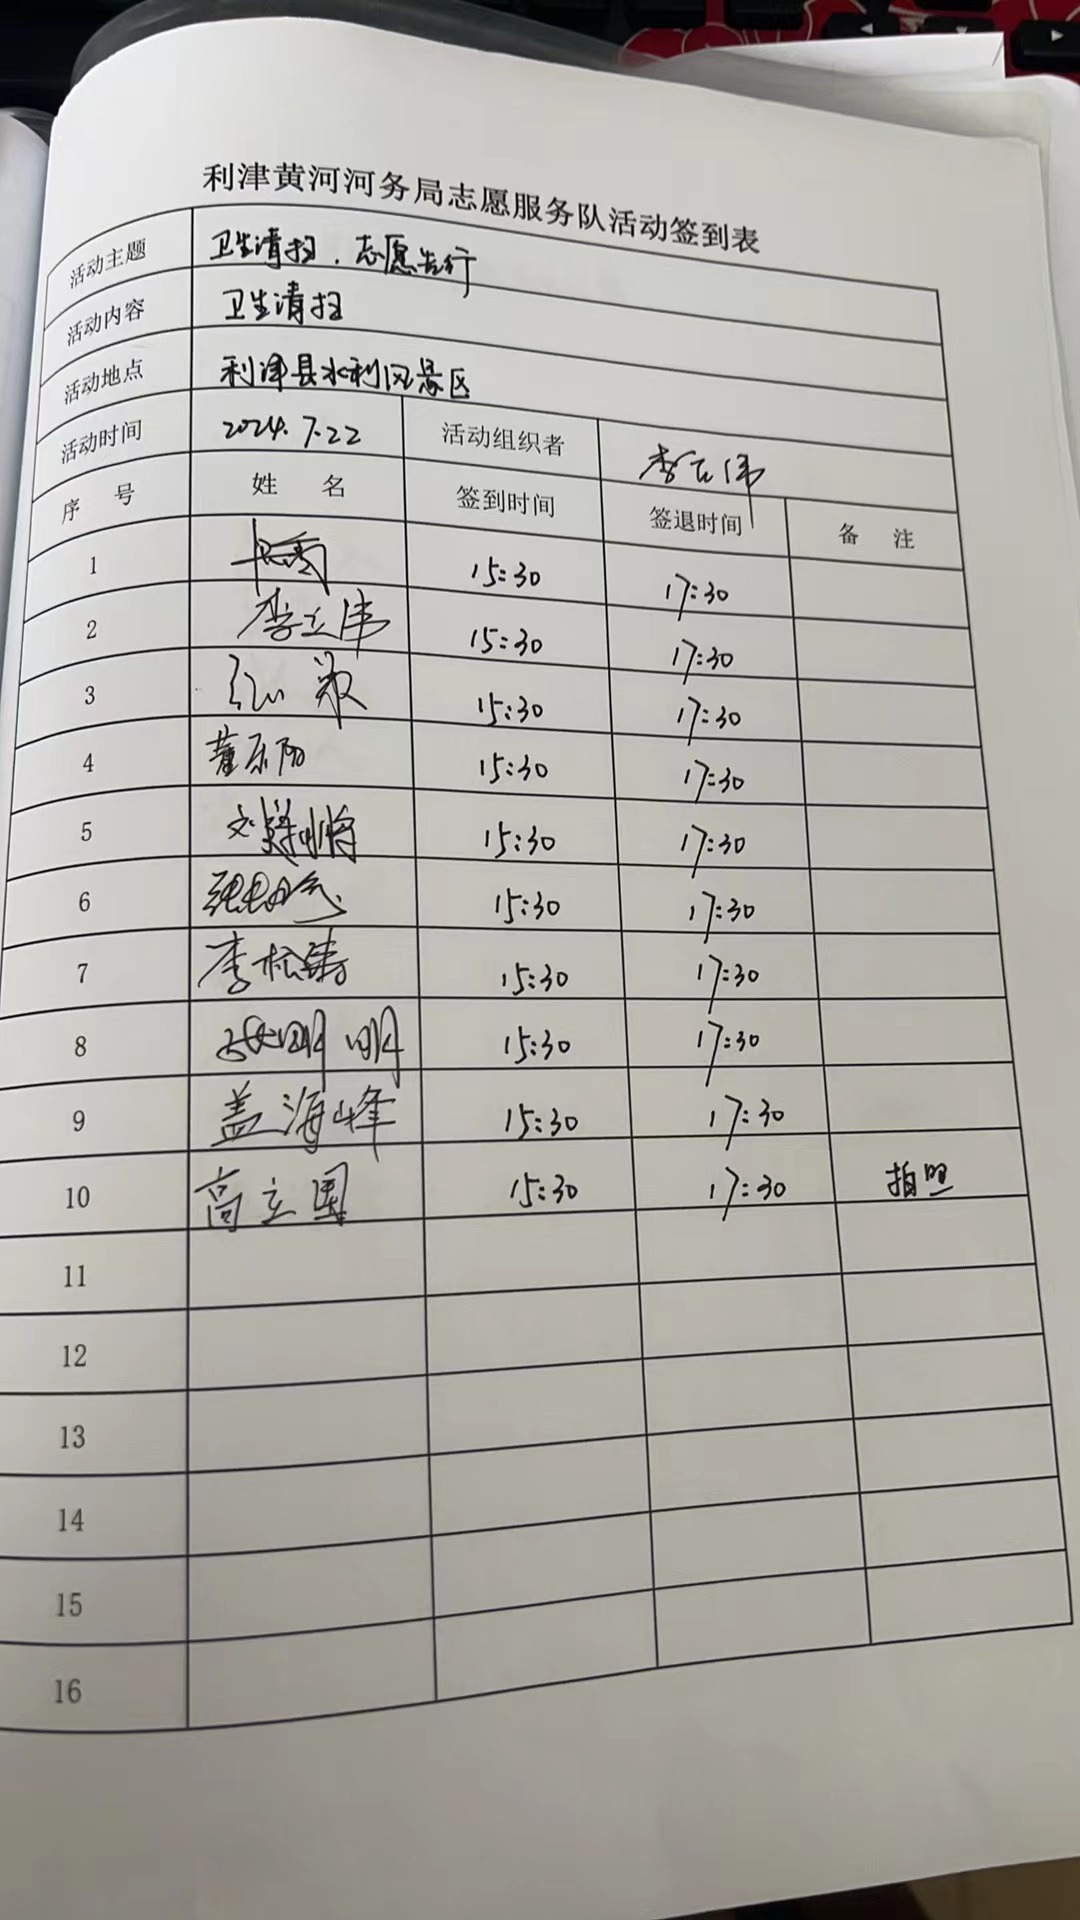 利津黄河河务局志愿服务队活动签到表
活动主题 卫生清扫.志愿先行
活动内容 卫生清扫
活动地点 利津县水利风景区
活动时间 2024.7.22 活动组织者 李立伟
序号 姓名 签到时间 签退时间 备注
1 15:30 17:30
2 李立伟 15:30 17:30
3 15:30 17:30
4 董乐阳 15:30 17:30
5 15:30 17:30
6 15:30 17:30
7 李松涛 15:30 17:30
8 15:30 17:30
9 盖海峰 15:30 17:30
10 高立国 15:30 17:30 拍照
11
12
13
14
15
16